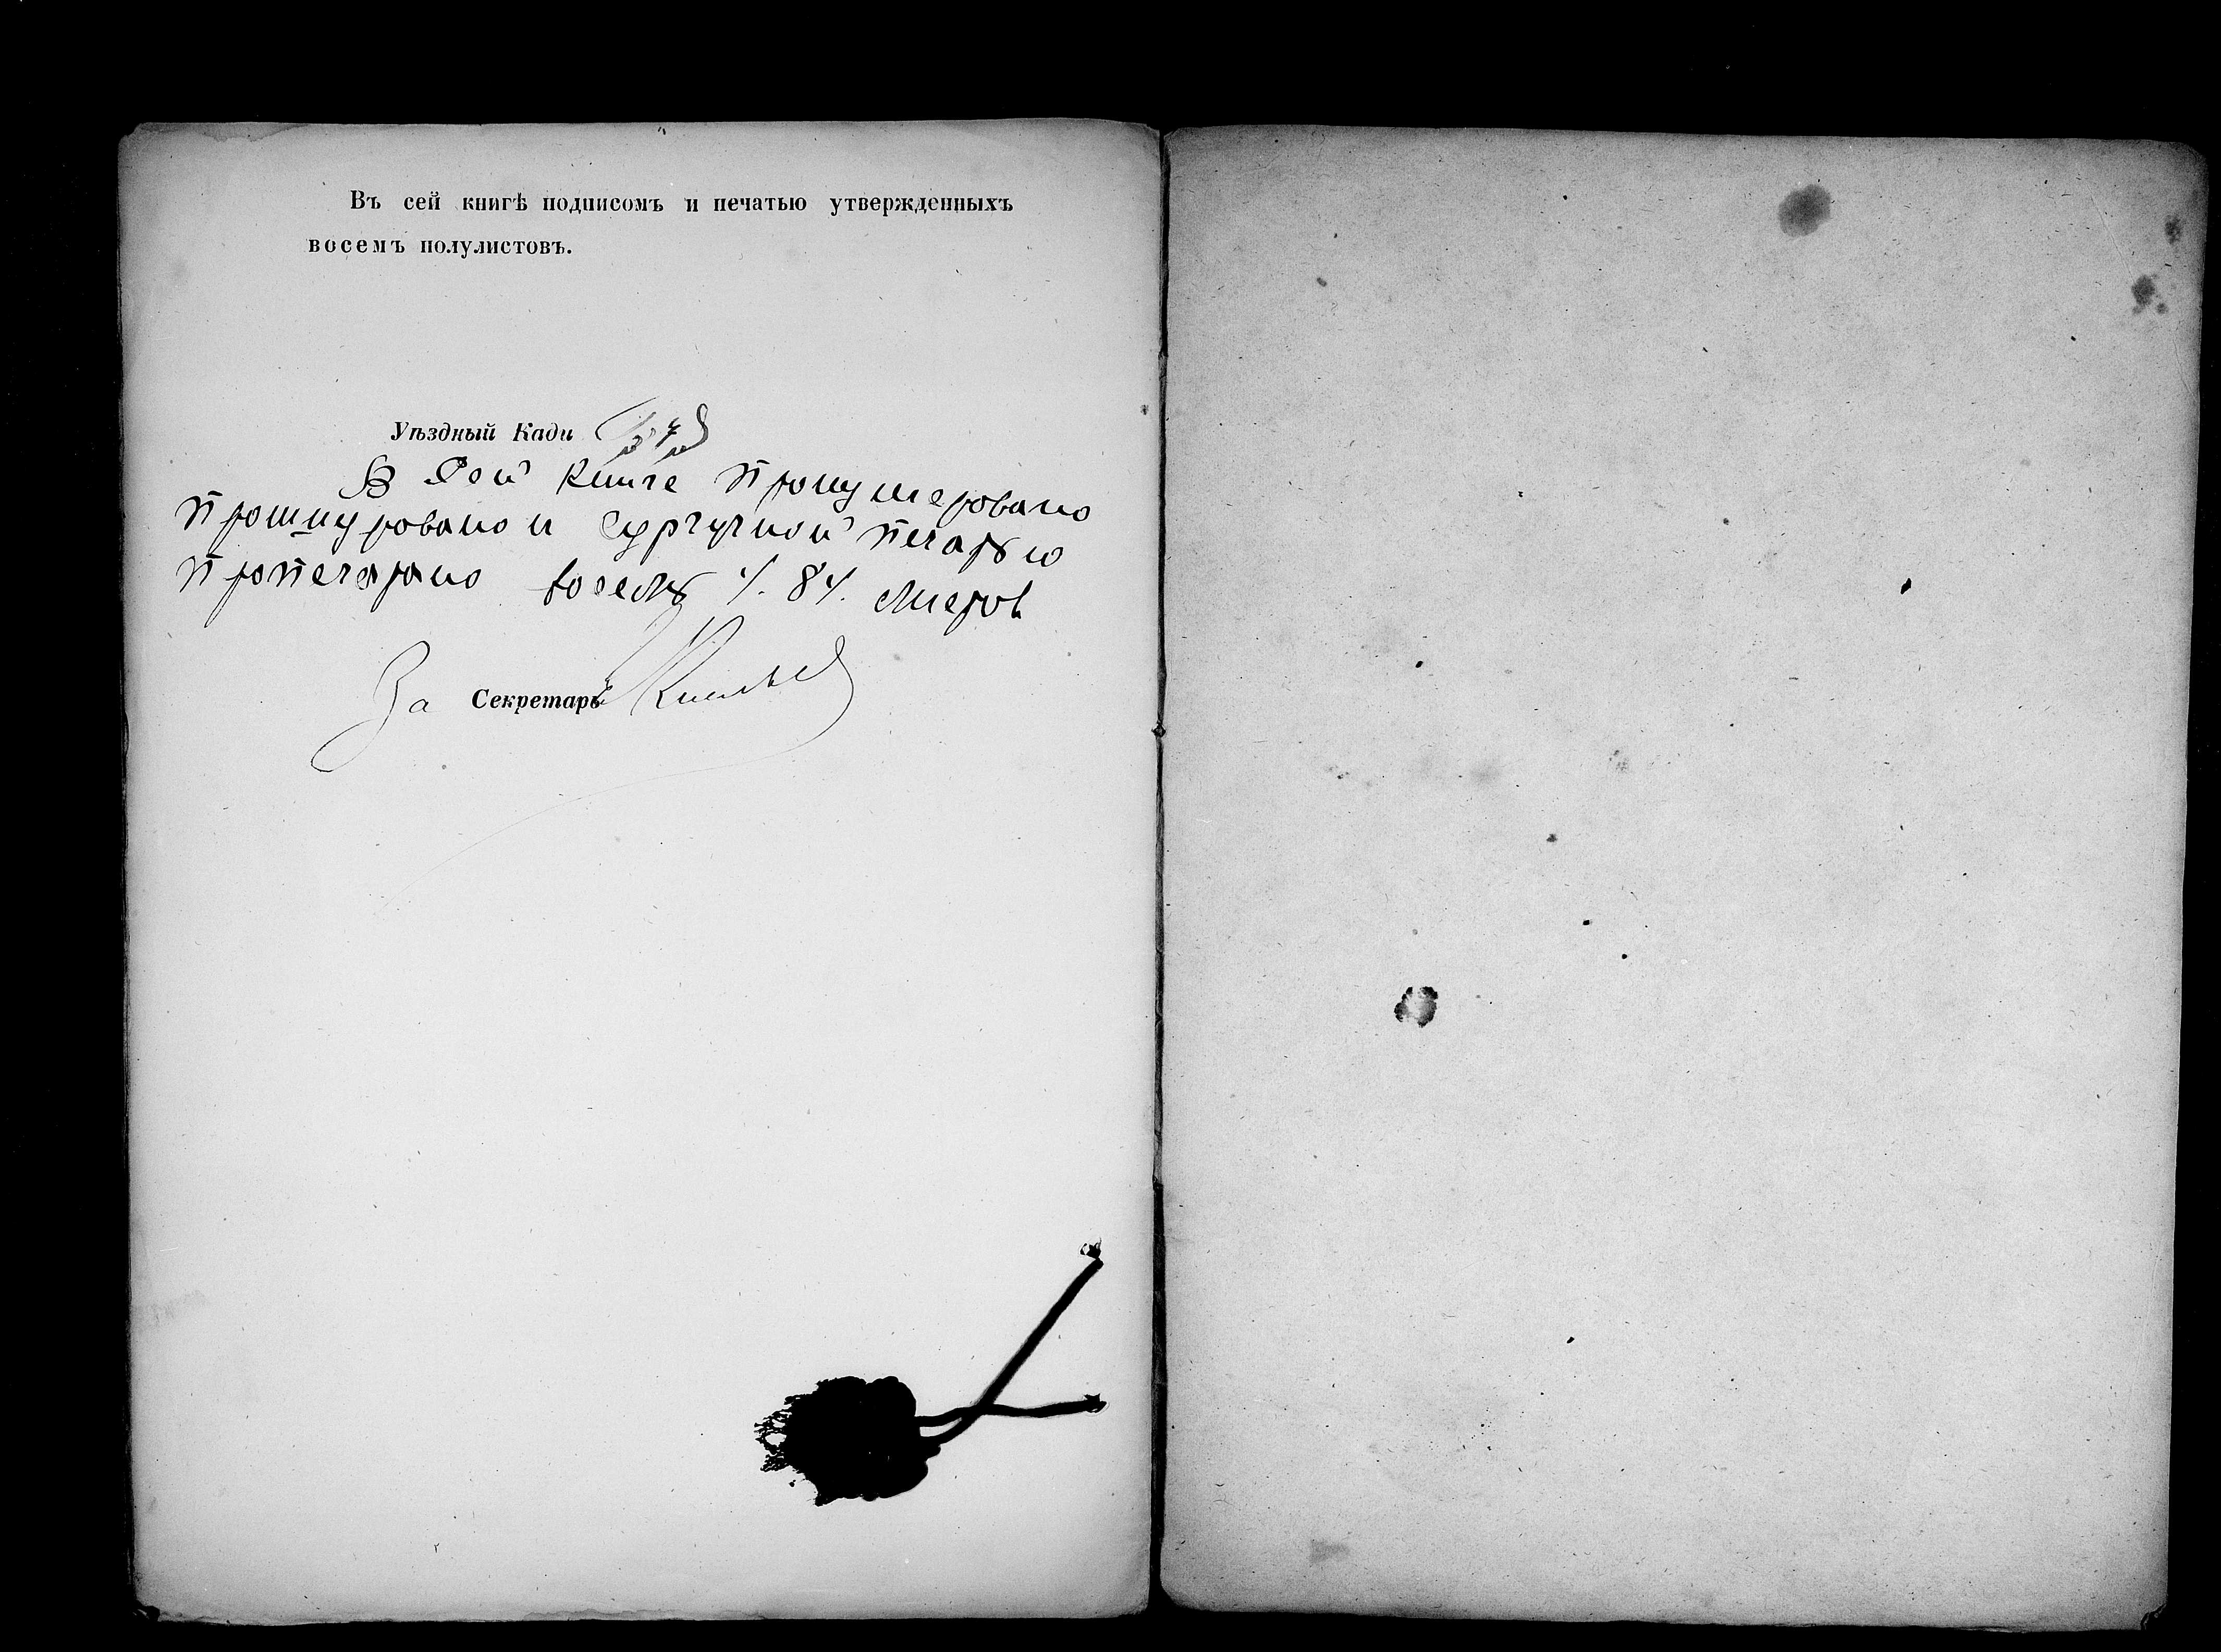 Въ сей книгѣ подписомъ и печатью утвержденныхъ
восемъ полулистовъ.
Уѣздный Кади
В сей книге пронумеровано
прошнуровано и сургучной печатью
пропечатано восемь /. 8 /. листов
За Секретаръ